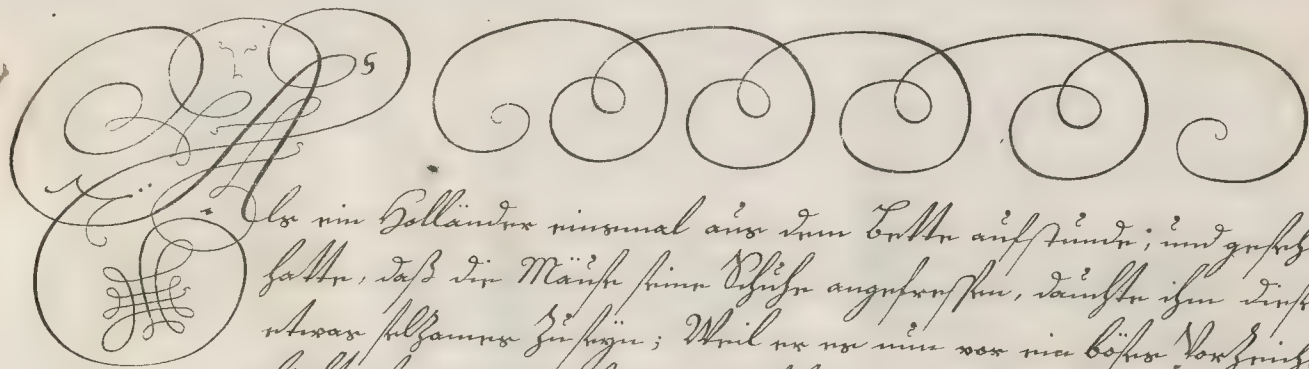 Als ein Holländer einsmal aus dem Bette aufstunde; und geseh
hatte, daß die Mäuse seine Schuhe angefressen, dauchte ihm diese
etwas selzames zu seyn; Weil er es nun vor ein böses Vorzeich